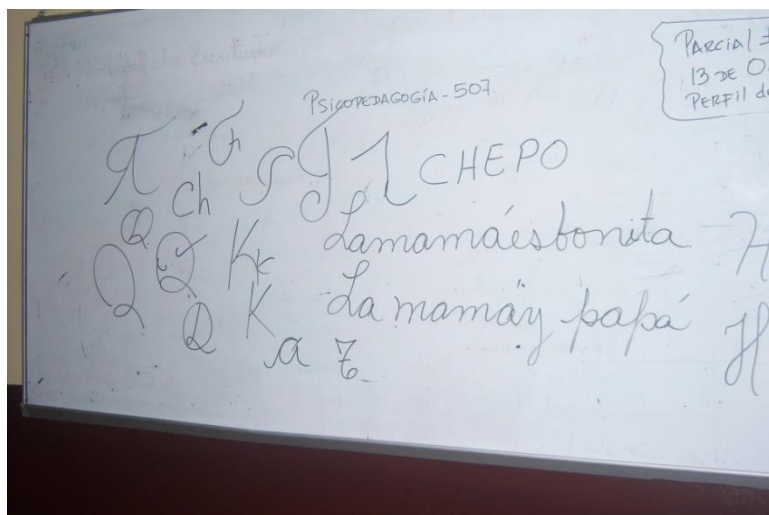 PARCIAL
13 DE
PERFIL de
PSICOPEDAGOGÍA - 507
Ch
CHEPO
Q Q Kk Lamamáesbonita H
Q K La mamáy papá H
a z